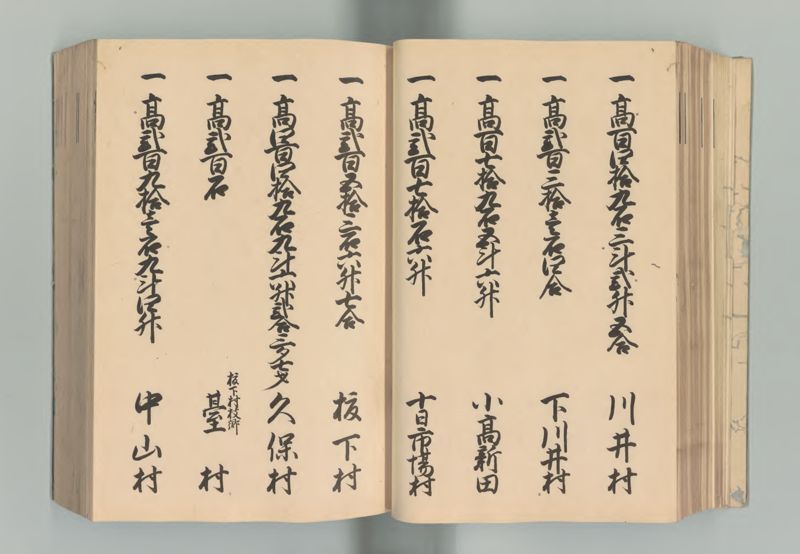 一 高百四拾九石三斗弐升五合 川井村
一 高弐百三拾壱石四合 下川井村
一 高百七拾九石五斗六升 小高新田
一 高弐百七拾石六升 十日市場村
一 高弐百五拾三石六升七合 榎下村
一 高四百四拾九石九斗六升弐合三勺七才 久保村
一 高弐百石 榎下村枝郷 臺村
一 高弐百九拾壱石九斗四升 中山村